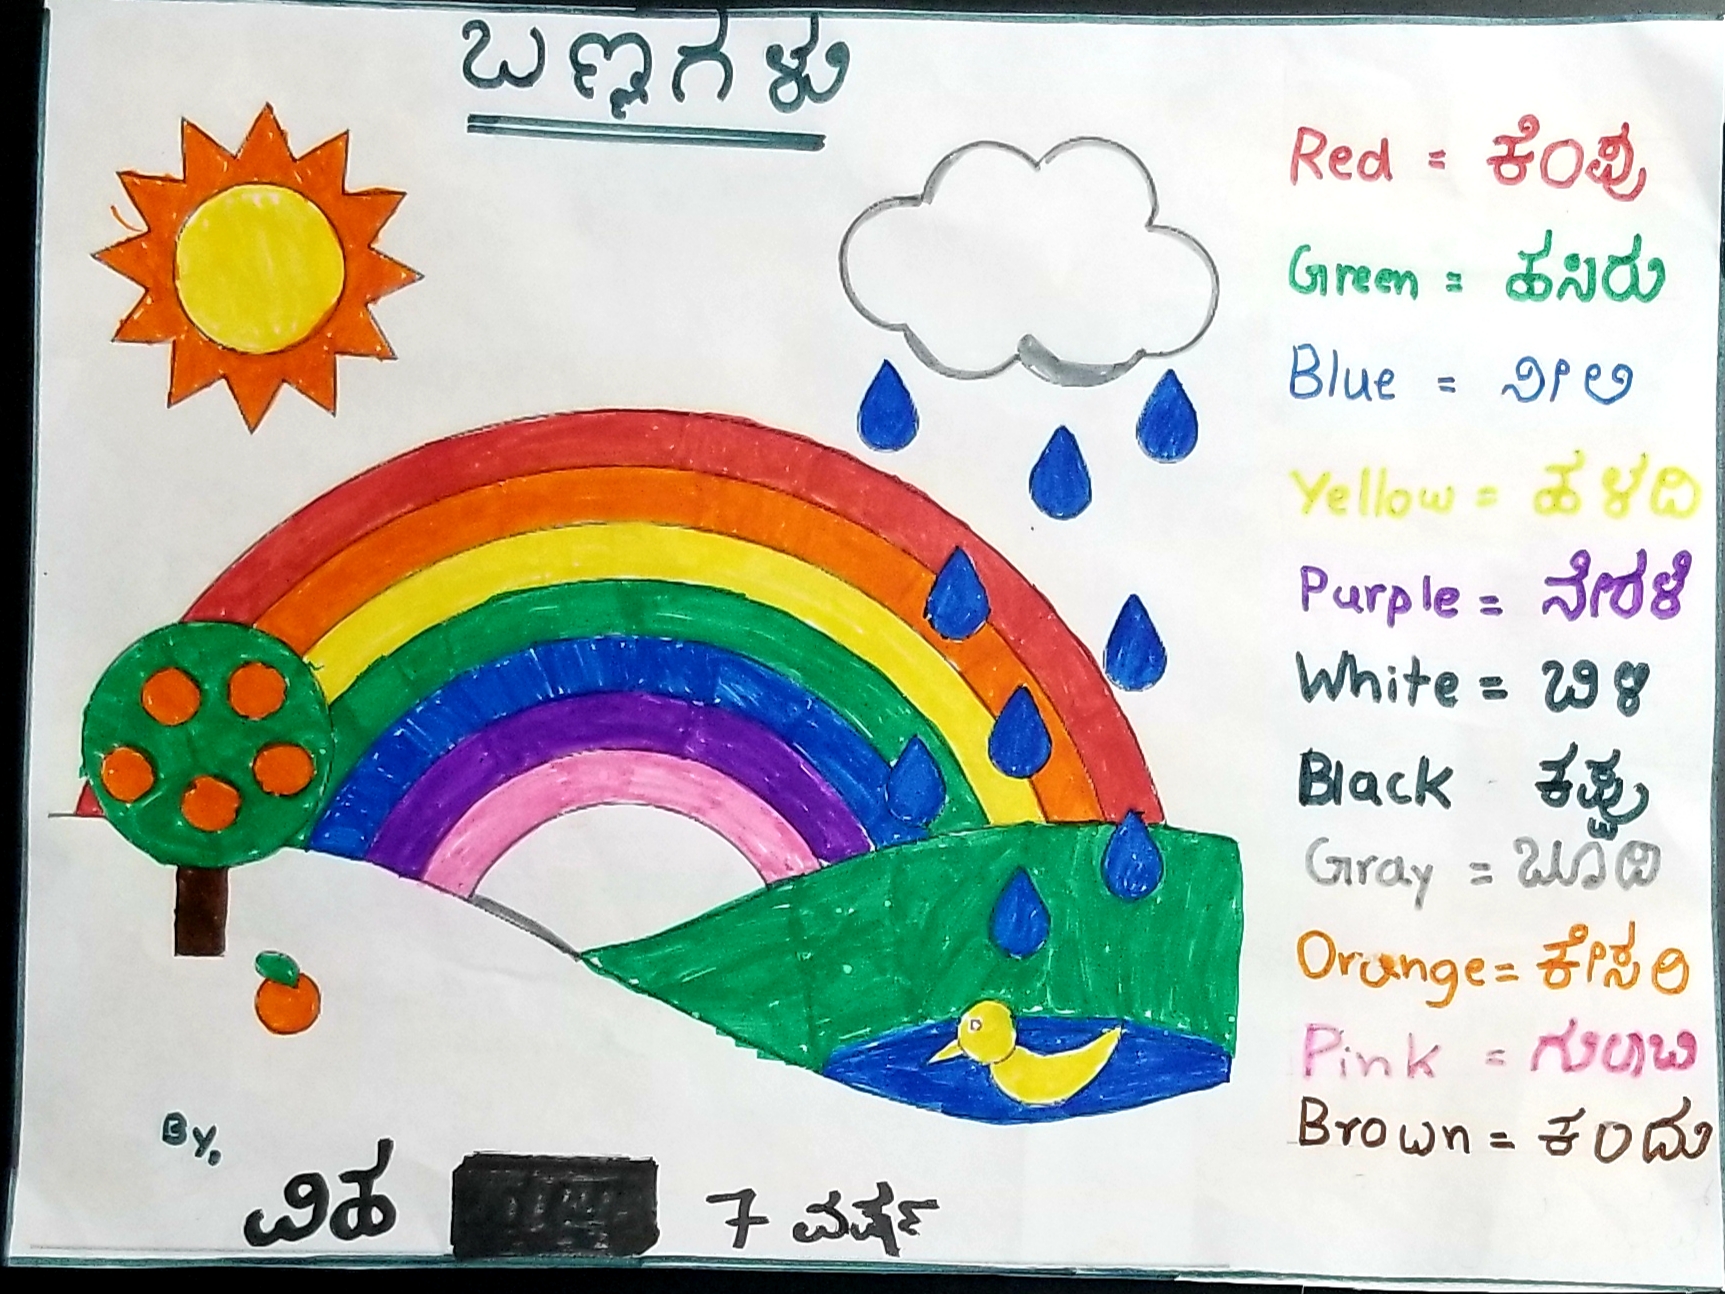 ಬಣ್ಣಗಳು
Red = ಕೆಂಪು
Green = ಹಸಿರು
Blue = ನೀಲಿ
Yellow = ಹಳದಿ
Purple = ನೇರಳೆ
White = ಬಿಳಿ
Black ಕಪ್ಪು
Gray = ಬೂದಿ
Orange = ಕೇಸರಿ
Pink = ಗುಲಾಬಿ
Brown = ಕಂದು
By,
ವಿಹ 7 ವರ್ಷ